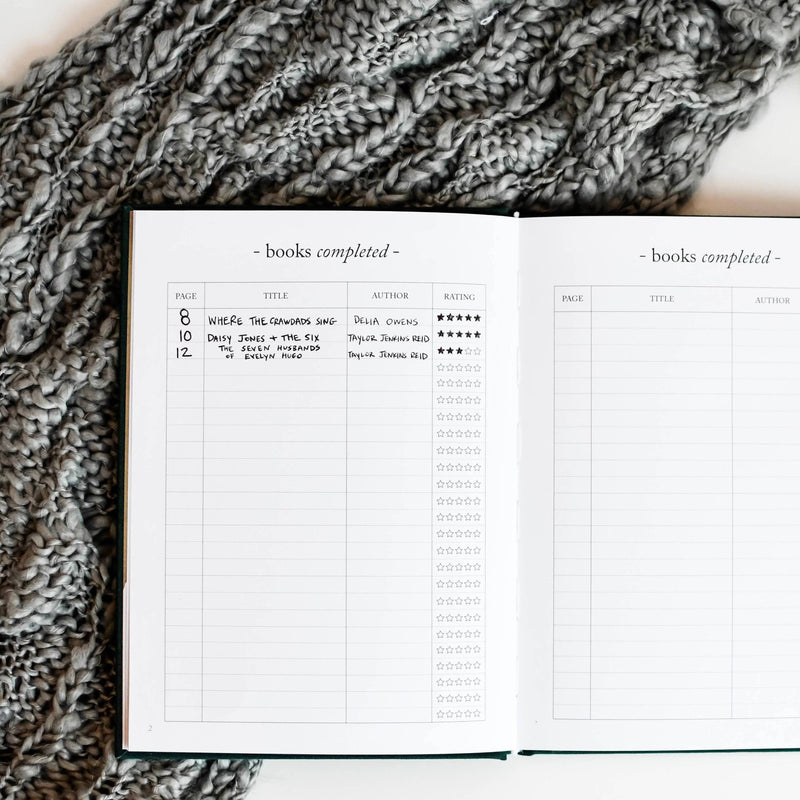 - books completed -
PAGE TITLE AUTHOR RATING
8 WHERE THE CRAWDADS SING DELIA OWENS
10 DAISY JONES + THE SIX TAYLOR JENKINS REID
12 THE SEVEN HUSBANDS
OF EVELYN HUGO TAYLOR JENKINS REID
2
- books completed -
PAGE TITLE AUTHOR